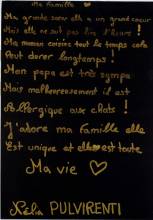 Ma famille ♡
Ma grande sœur elle a un grand cœur
Mais elle ne sait pas lire l'heure !
Ma maman cuisine tout le temps cela
Peut durer longtemps !
Mon papa est très sympa
Mais malheureusement il est
Allergique aux chats !
J'adore ma famille elle
Est unique et elle est toute
Ma vie ♡
Lélia PULVIRENTI